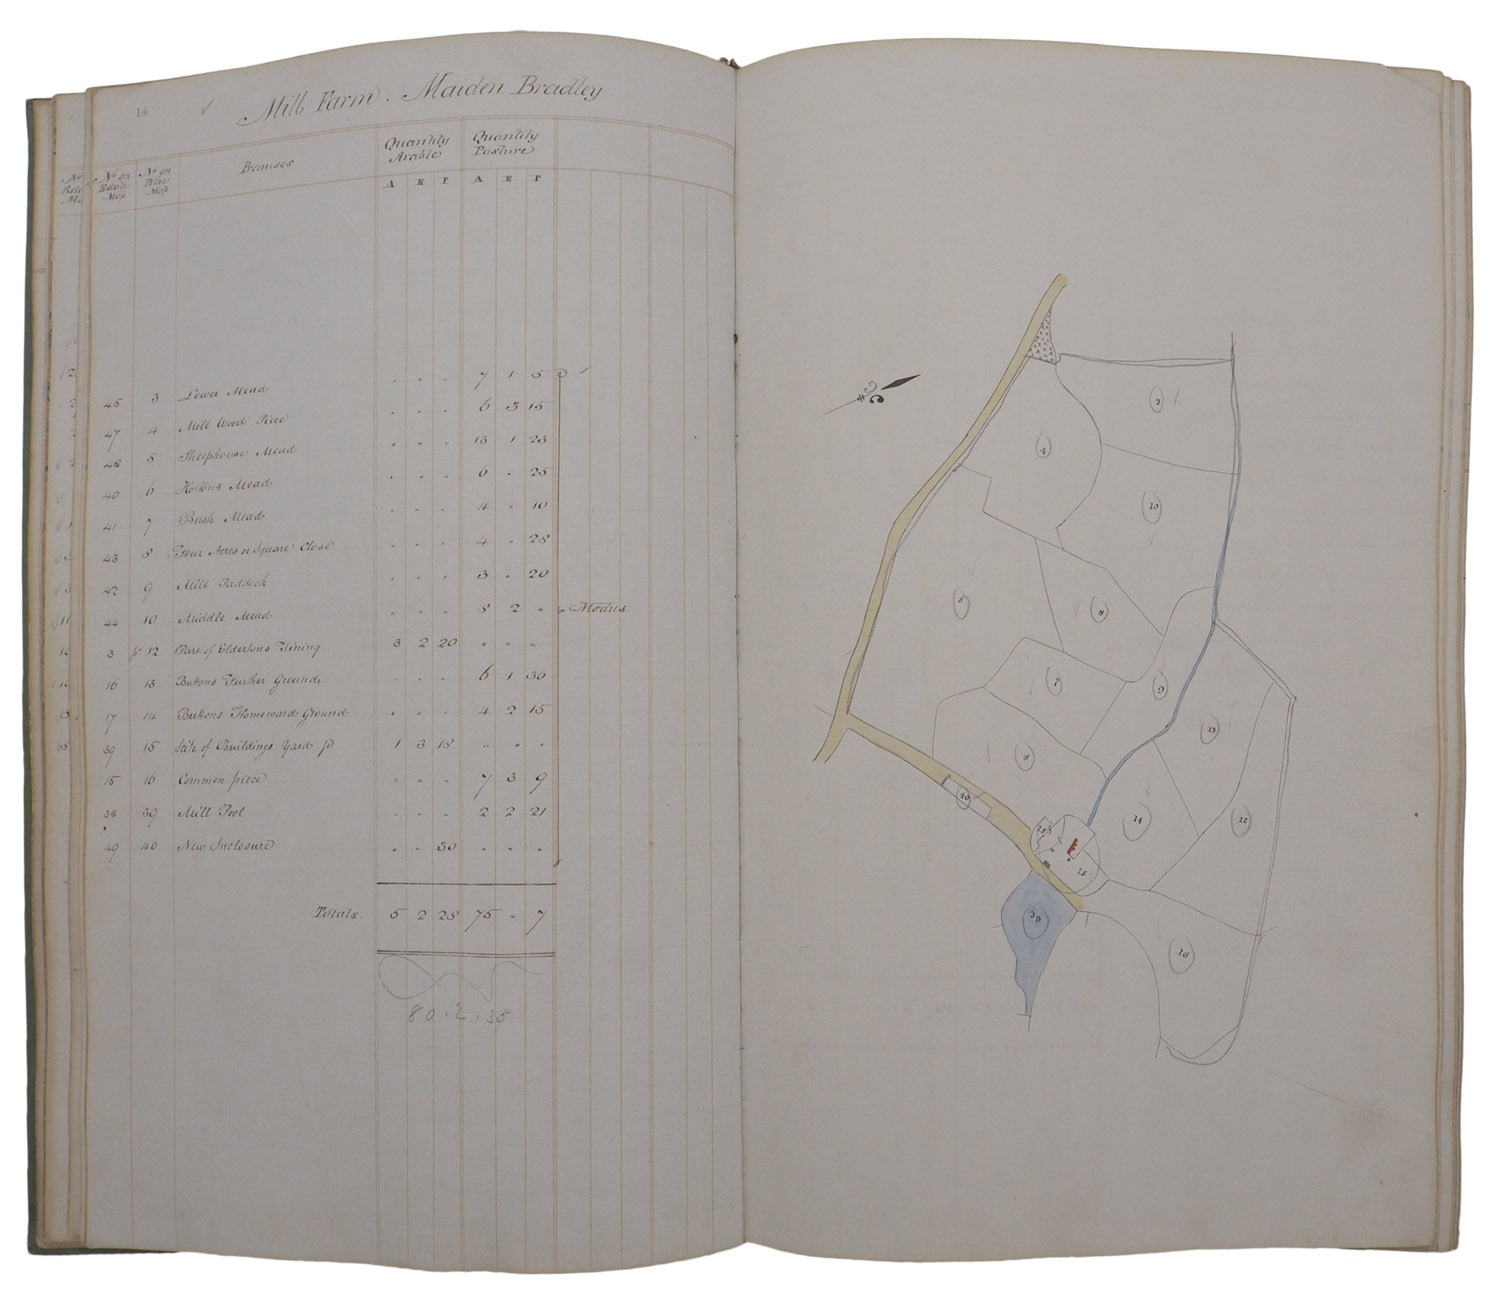 14 Mill Farm. Maiden Bradley
No on Estate Map No on this Map Premises Quantity Arable Quantity Pasture
A R P A R P
45 3 Lower Mead " " " 7 1 5
47 4 Mill Wood Piece " " " 6 3 15
48 5 Sheephouse Mead " " " 13 1 23
40 6 Hortons Mead " " " 6 " 25
41 7 Bush Mead " " " 4 " 10
43 8 Four Acres or Square Close " " " 4 " 28
42 9 Mill Paddock " " " 3 " 20
44 10 Middle Mead " " " 8 2 " Modus
3 pt 12 Part of Eldertons Tining 3 2 20 " " "
16 13 Buttons Further Ground " " " 6 1 36
17 14 Buttons Homeward Ground " " " 4 2 15
39 15 Site of Buildings Yard 1 3 18 " " "
15 16 Common piece " " " 7 3 9
38 39 Mill Pool " " " 2 2 21
49 40 New Inclosure " " 30 " " "
Totals. 5 2 28 75 " 7
80. 2. 35
3
4
10
5
6
7
9
13
8
40
14
12
15
15
39
16